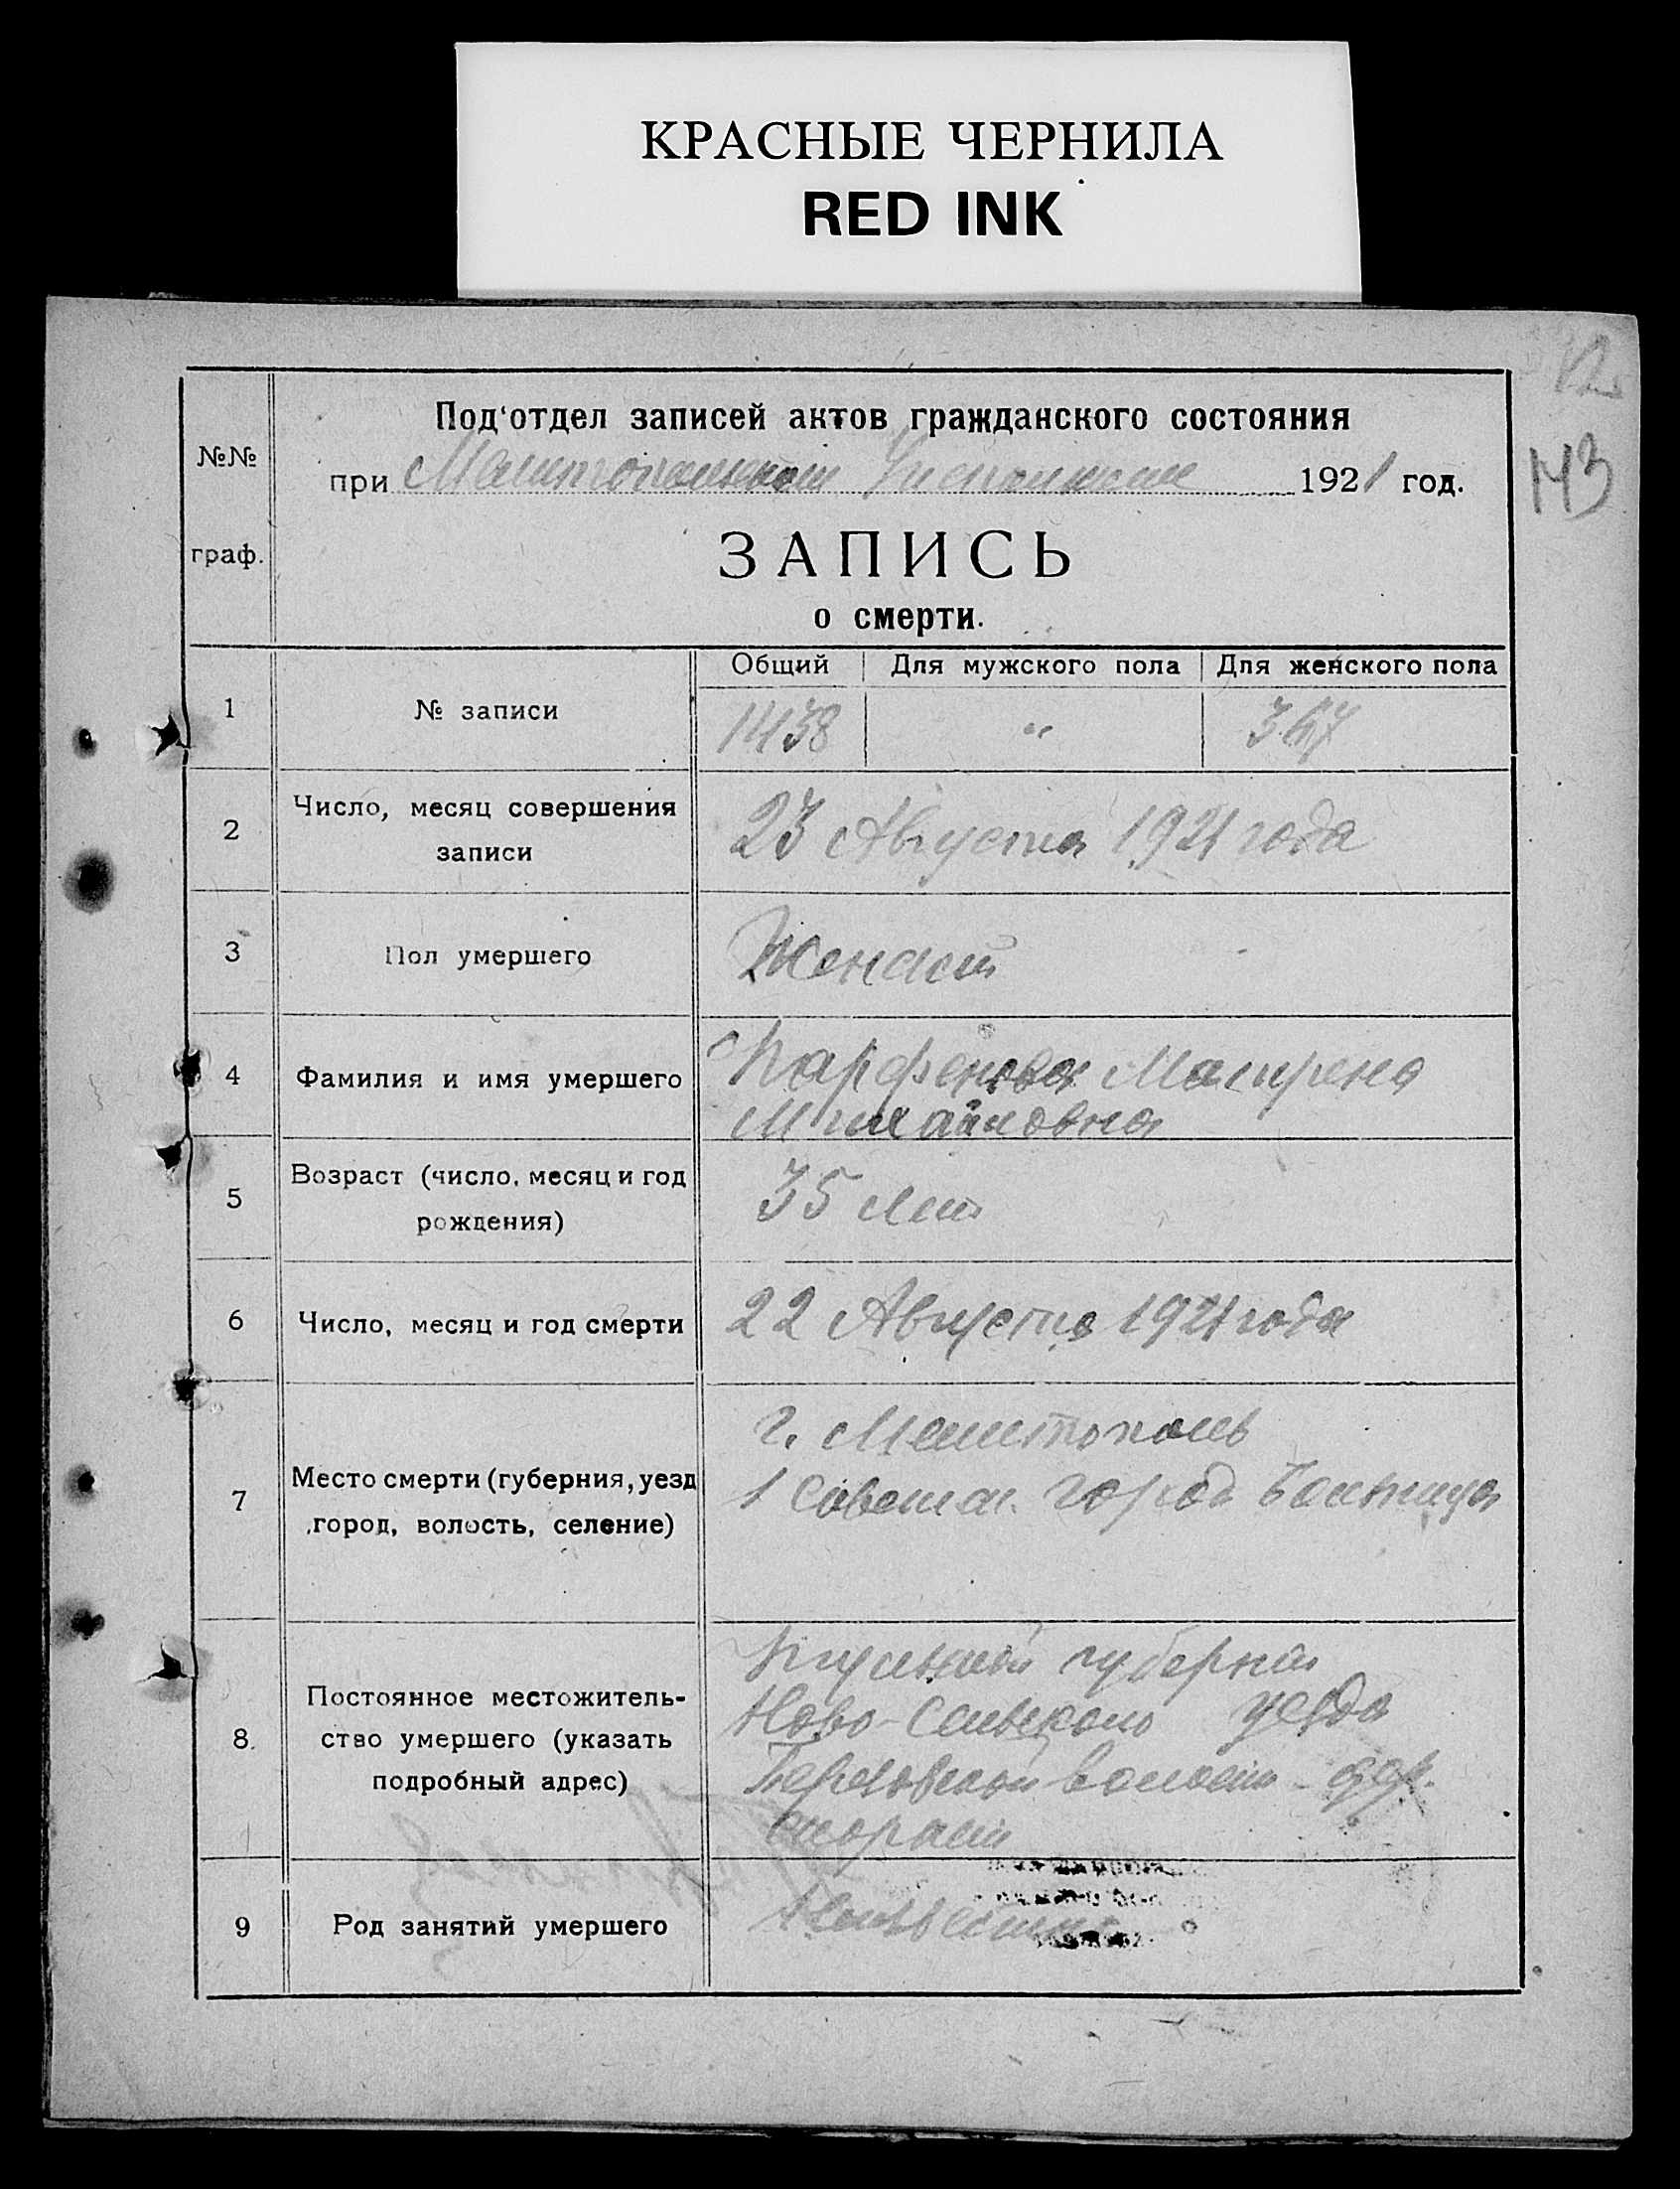 КРАСНЫЕ ЧЕРНИЛА
RED INK
Под'отдел записей актов гражданского состояния
№№
при Мелитопольском 1921 год.
143
граф.
ЗАПИСЬ
о смерти.
Общий Для мужского пола Для женского пола
1 № записи 1438 " 367
2 Число, месяц совершения записи 23 Августа 1921 года
3 Пол умершего
4 Фамилия и имя умершего Парфенова Матрена
Михайловна
5 Возраст (число, месяц и год рождения) 35 лет
6 Число, месяц и год смерти 22 Августа 1921 года
7 Место смерти (губерния, уезд, город, волость, селение) г. Мелитополь
1 Советск. город больница
8. Постоянное местожительство умершего (указать подробный адрес) губернии
Ново-Сельского уезда
волости дер.
9 Род занятий умершего